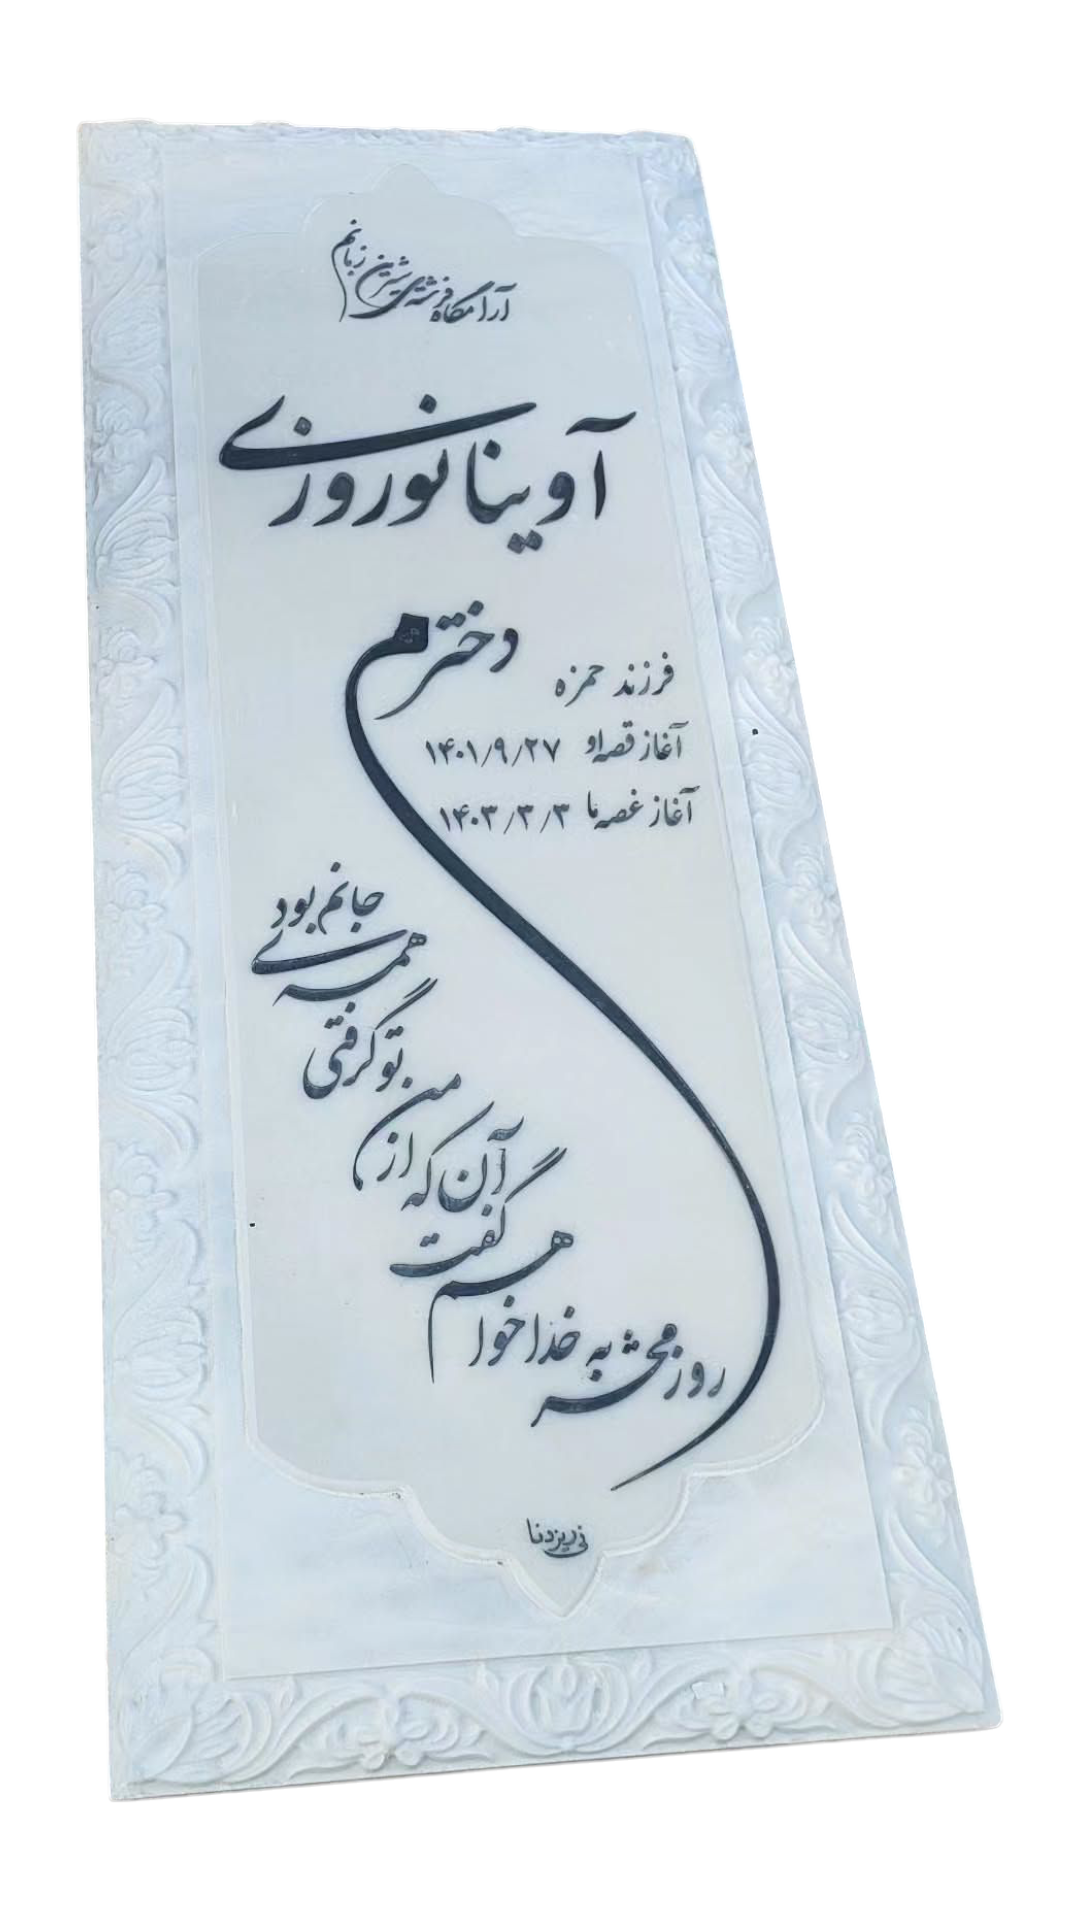 آرامگاه فرشته‌ی شیرین زبانم
آوینا نوروزی
دخترم
فرزند حمزه
آغاز قصه او ۱۴۰۱/۹/۲۷
آغاز غصه ما ۱۴۰۳/۳/۳
روز محشر به خدا خواهم گفت
آن که از من تو گرفتی
همه‌ی جانم بود
نی ریزدنا